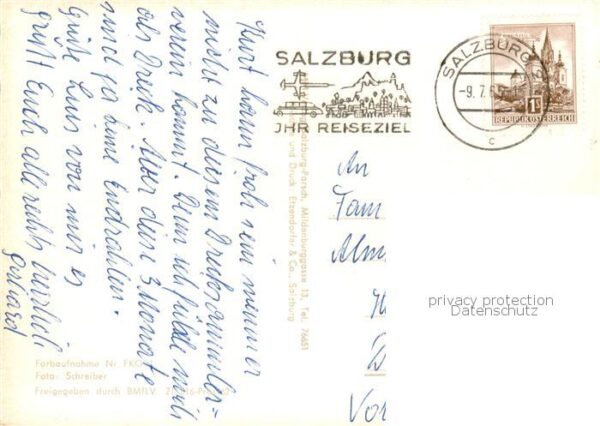 Kurt kann froh sein wenn er
nicht zu diesem Dreckrammler-
verein kommt. Denn ich fühle mich
als Dreck. Aber diese 3 Monate
sind ja keine
Gute Luis von mir es
grüßt Euch alle recht herzlich
Gerhard
SALZBURG
JHR REISEZIEL
SALZBURG 2
-9.7.6
c
1S
REPUBLIK ÖSTERREICH
Salzburg-Parsch, Mildenburggasse 13, Tel. 76651
und Druck Etzendorfer & Co., Salzburg
An
Fam
Alm
Vor
privacy protection
Datenschutz
Farbaufnahme Nr. FKG
Foto: Schreiber
Freigegeben durch BMfLV.